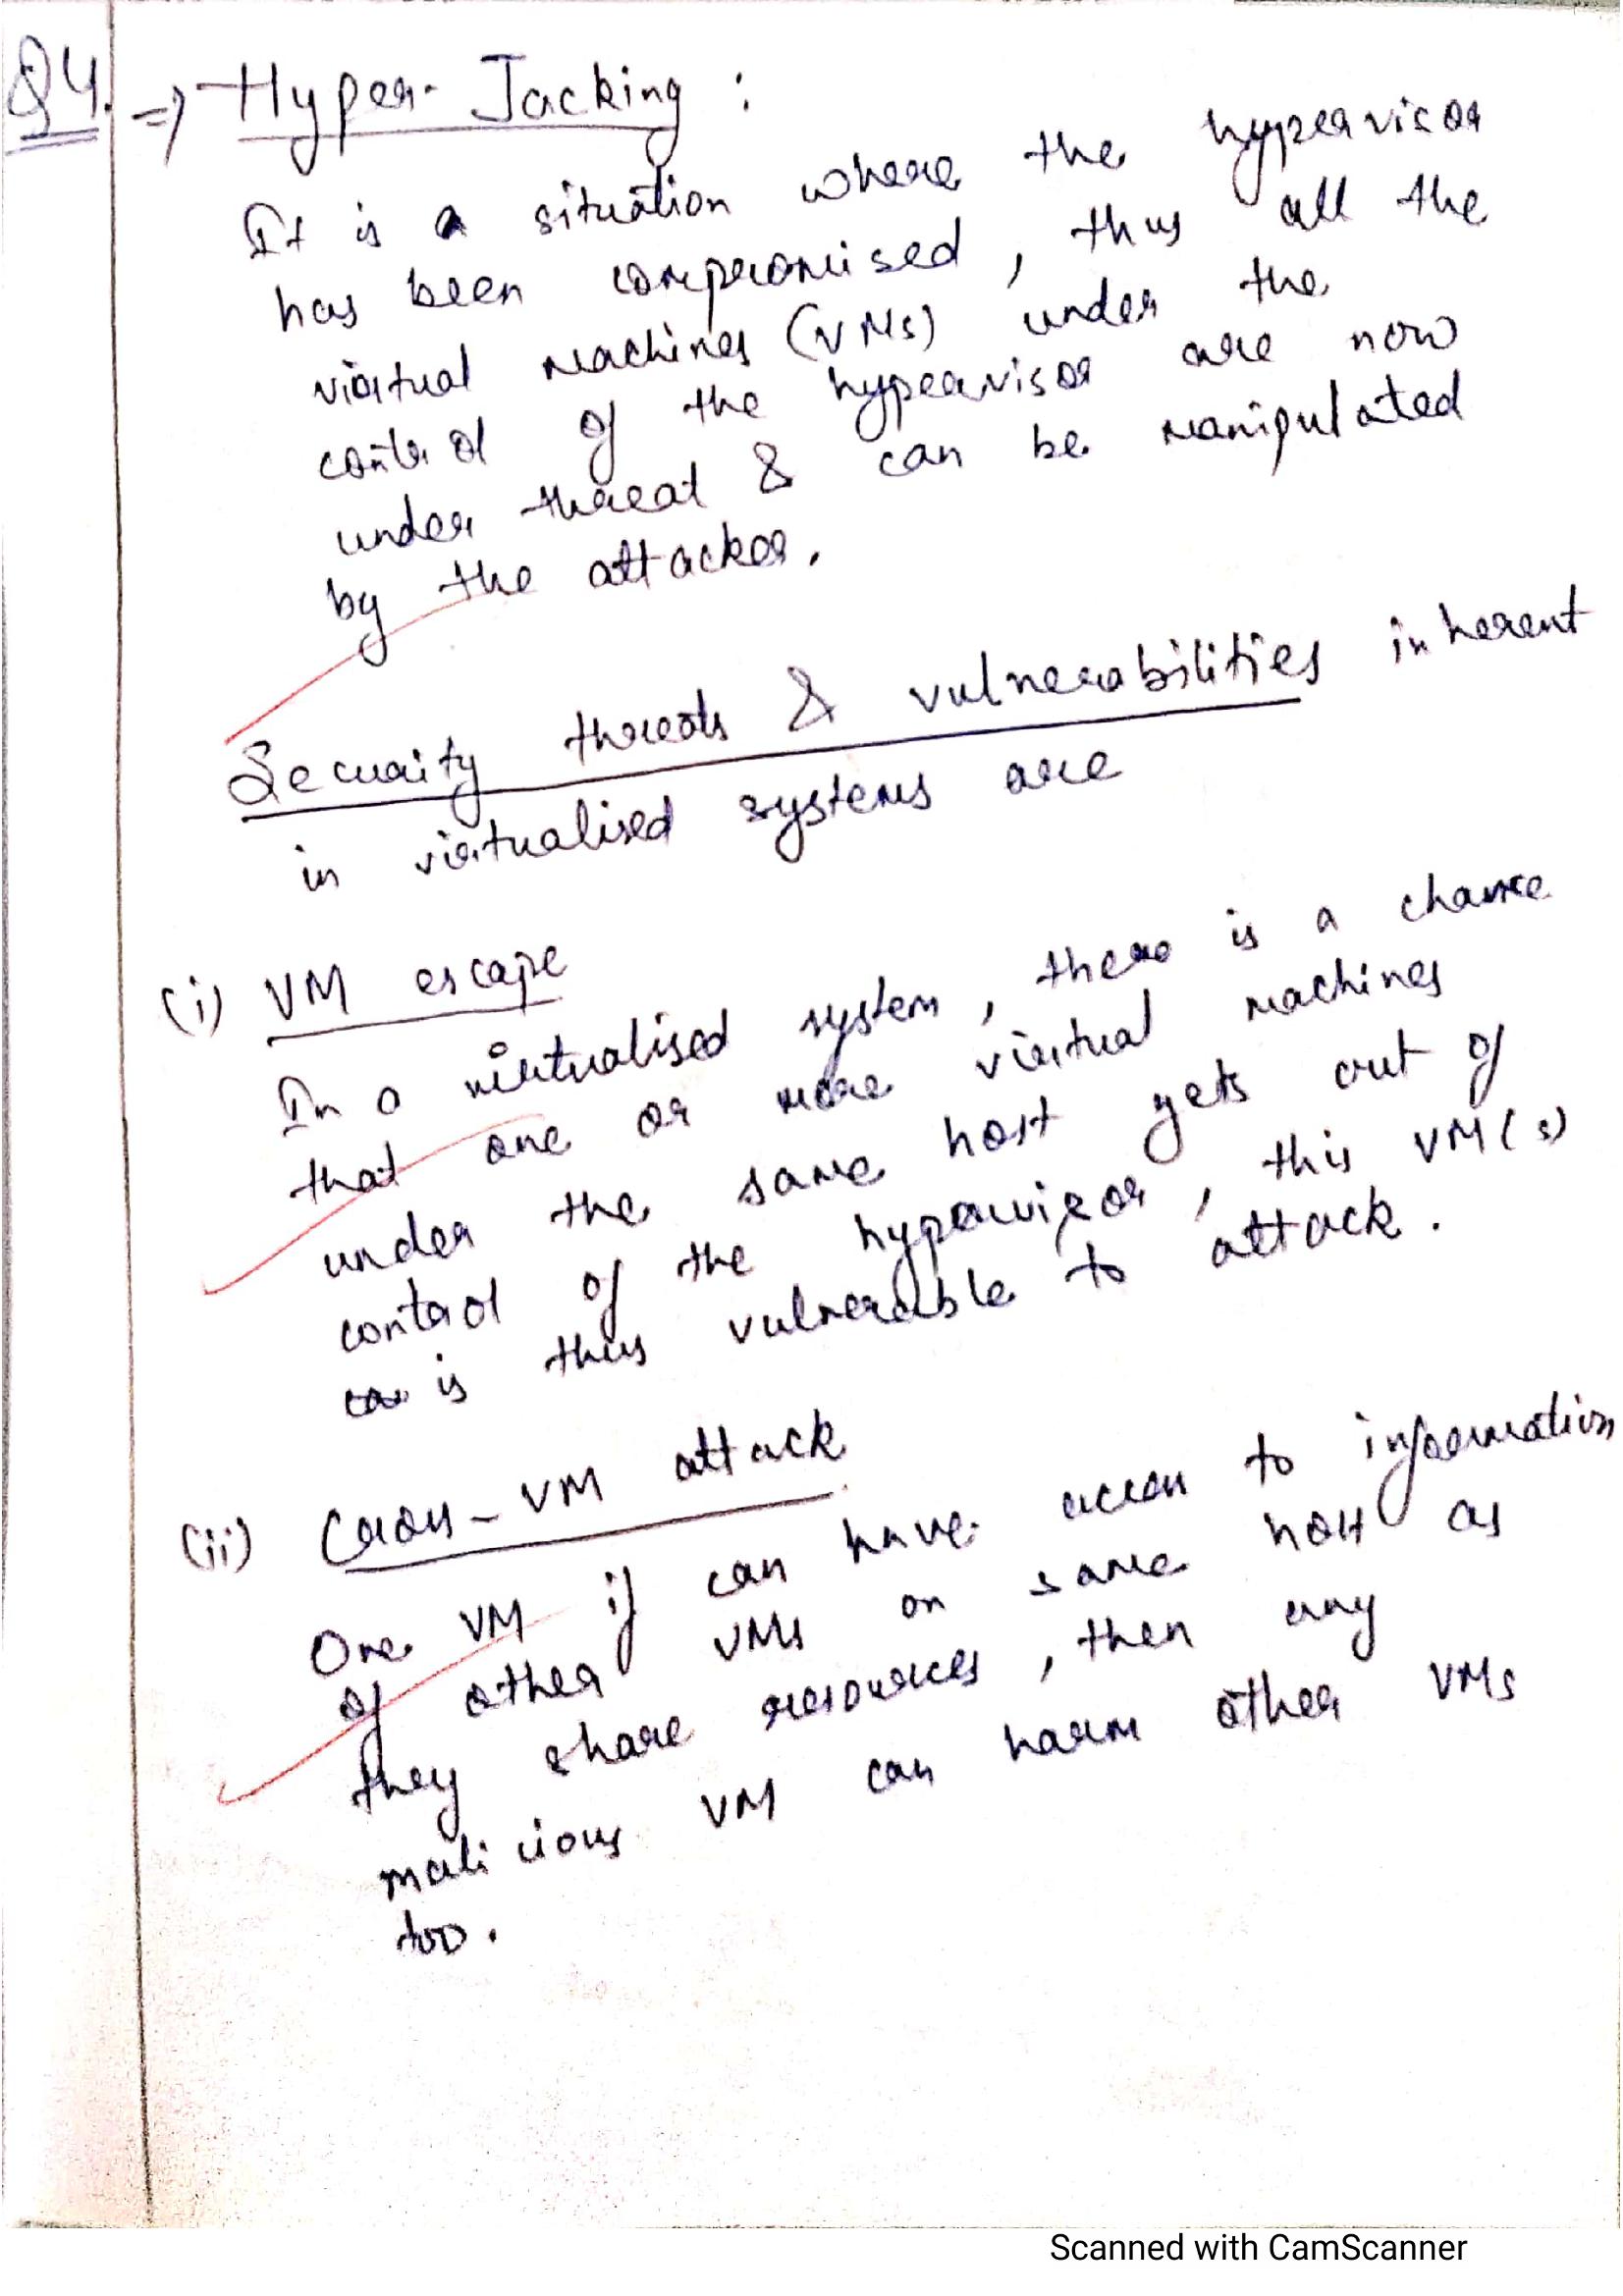 Q4. => Hyper-Jacking :
It is a situation where the hypervisor
has been compromised, thus all the
virtual machines (VMs) under the
control of the hypervisor are now
under threat & can be manipulated
by the attacker.
Security threats & vulnerabilities inherent
in virtualised systems are
(i) VM escape
In a virtualised system, there is a chance
that one or more virtual machines
under the same host gets out of
control of the hypervisor, this VM(s)
is thus vulnerable to attack.
(ii) Cross-VM attack
One VM if can have access to information
of other VMs on same host as
they share resources, then any
malicious VM can harm other VMs
too.
Scanned with CamScanner